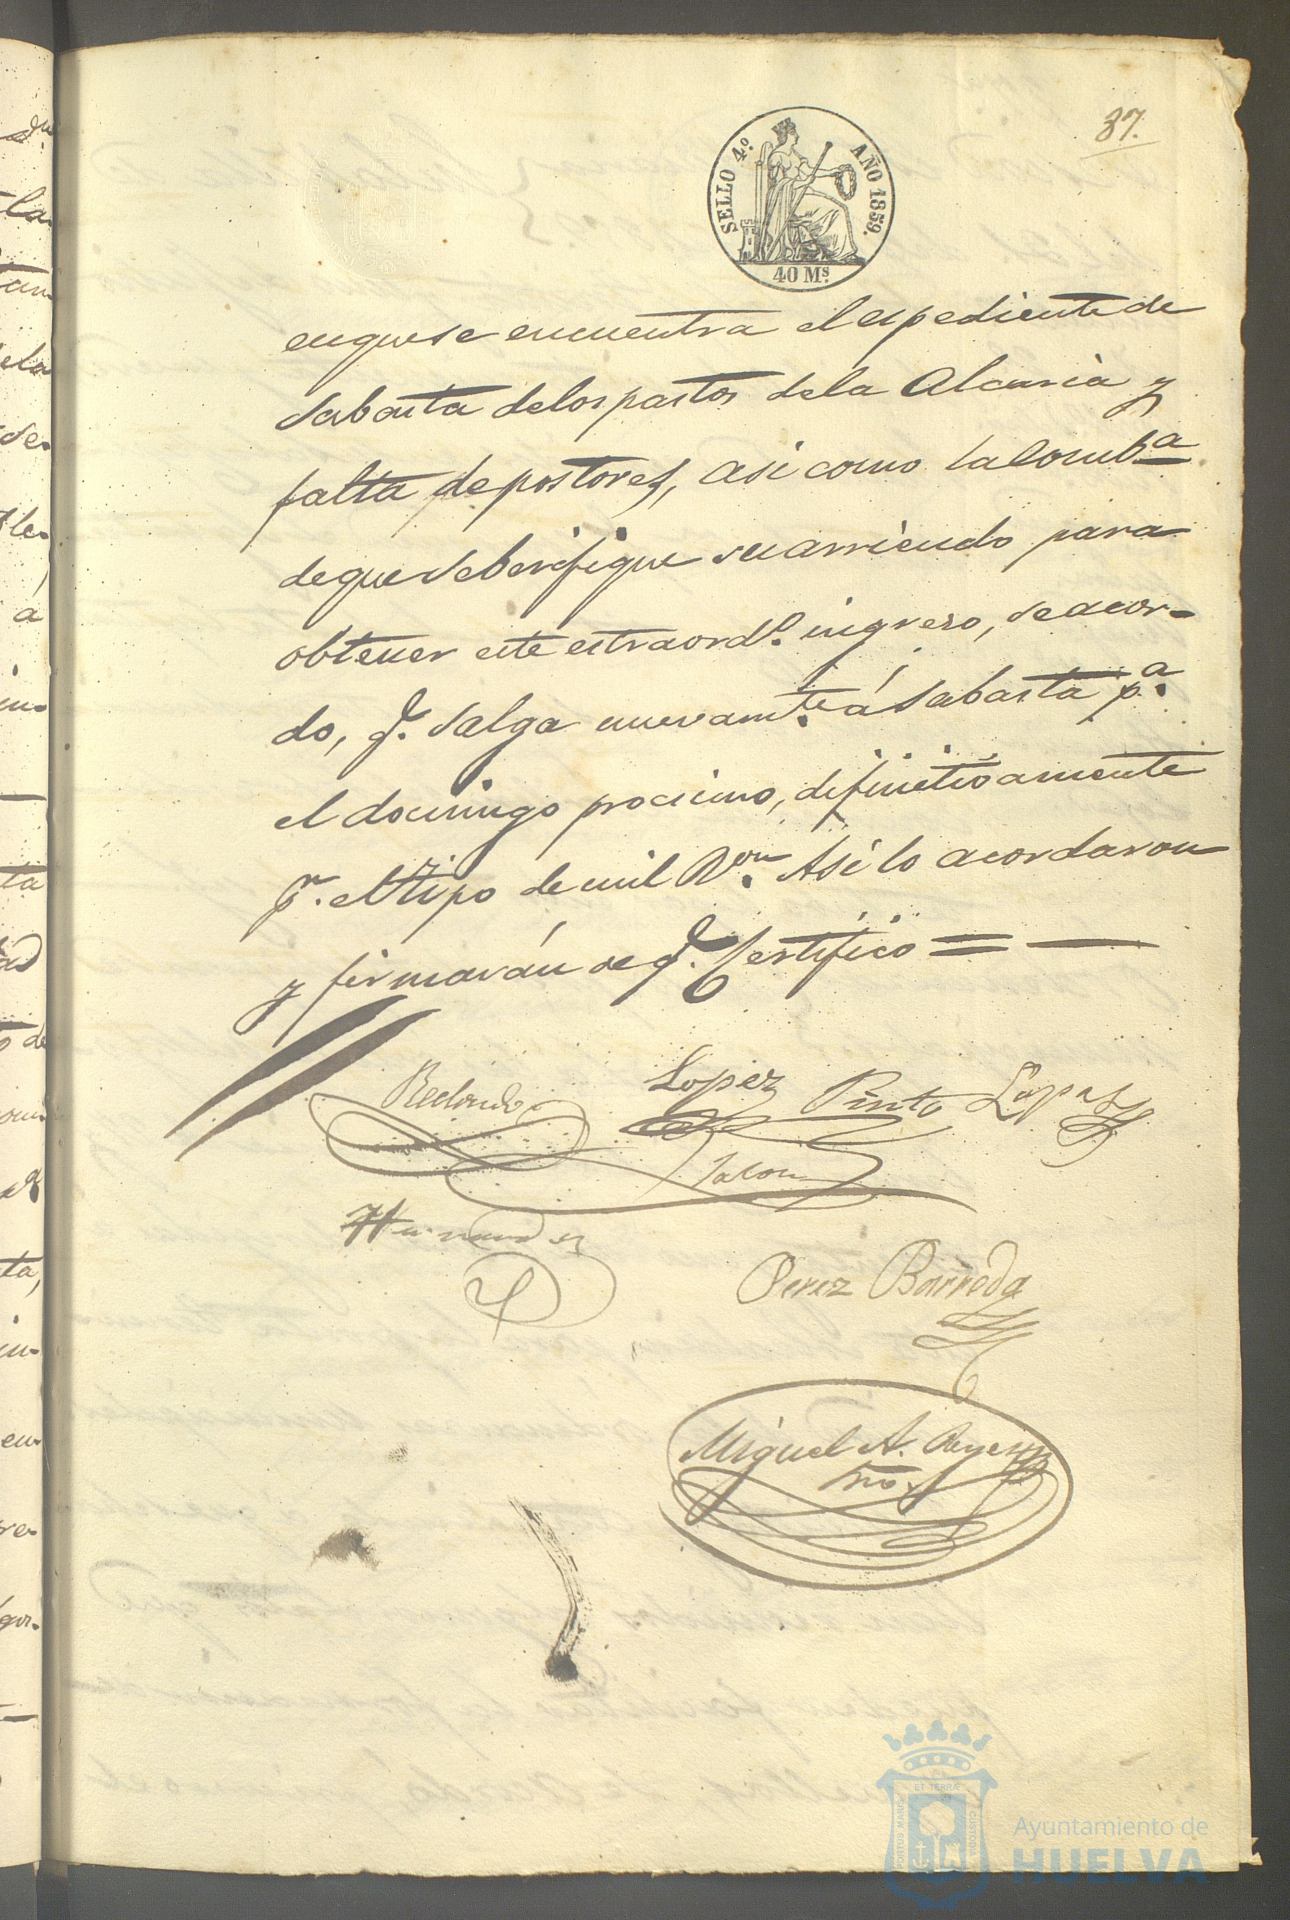 37.
SELLO 4º. AÑO 1859.
40 Ms.
en que se encuentra el espediente de
subasta de los pastos de la Alcaria y
falta de postores, asi como la comb.ª
de que se berifique su arriendo para
obtener este estraord.º ingreso, se acor-
do, q.e salga nuevam.te á subasta p.ª
el domingo procsimo, difinitivamente
p.r el tipo de mil R.on Asi lo acordaron
y firmarán de q.e Certifico =
Redondo Lopez Pinto Lopez
Jalon
Hernandez
Perez Barreda
Miguel A. Reyes
Srio.
ET TERRÆ
PORTUS MARIS
CUSTODIA
Ayuntamiento de
HUELVA